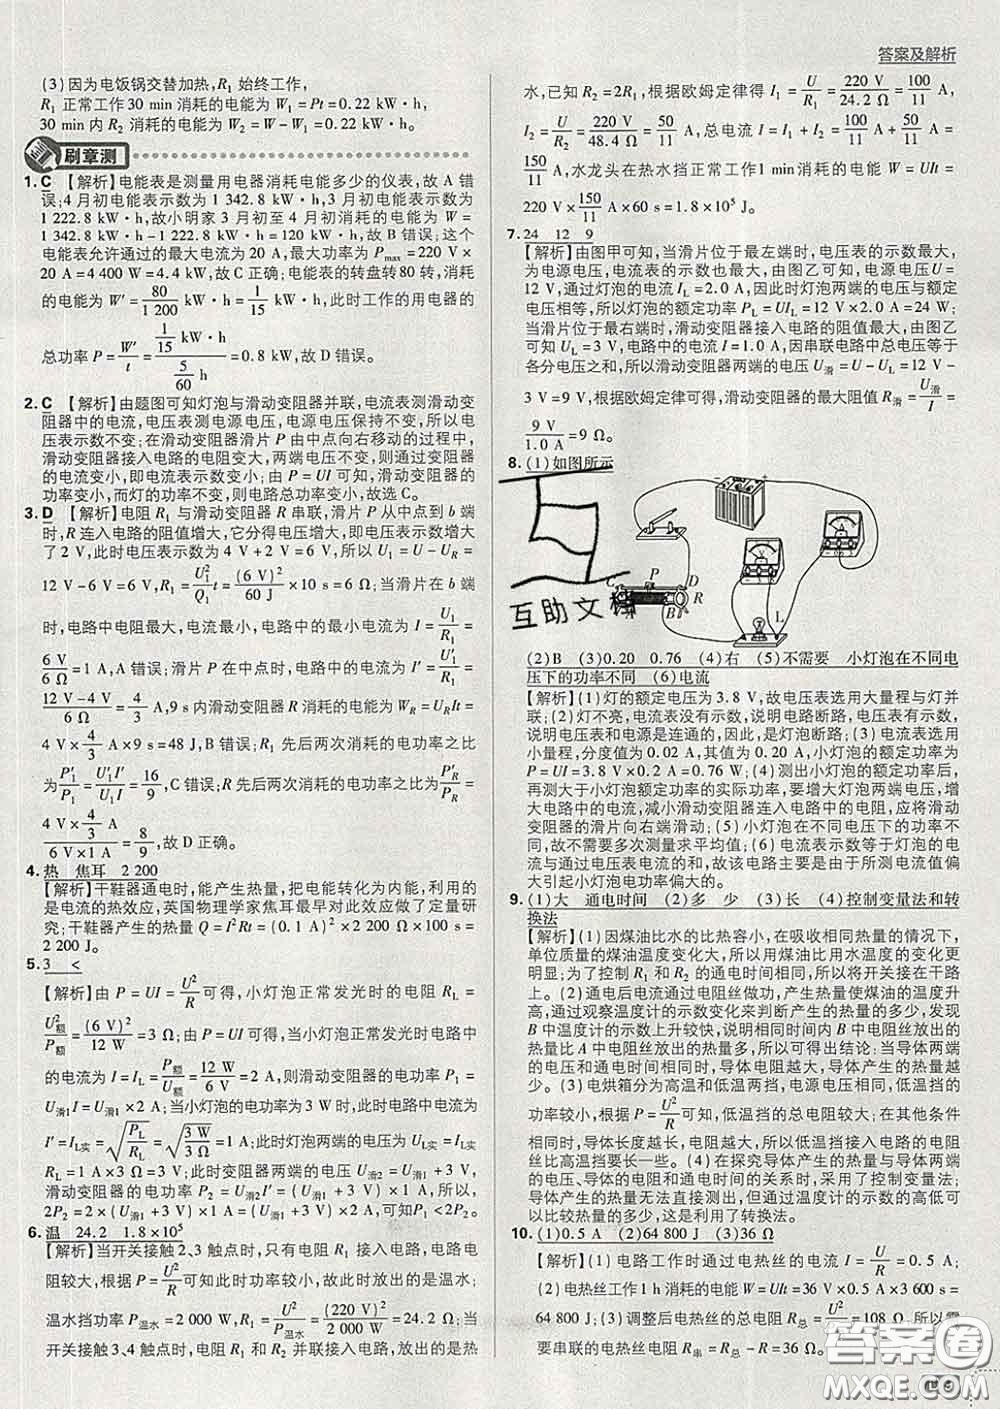 答案及解析
(3)因为电饭锅交替加热,R₁ 始终工作,
R₁ 正常工作 30 min 消耗的电能为 W₁=Pt=0.22 kW·h,
30 min 内 R₂ 消耗的电能为 W₂=W-W₁=0.22 kW·h。
刷章测
1. C 【解析】电能表是测量用电器消耗电能多少的仪表,故 A 错
误;4 月初电能表示数为 1 342.8 kW·h,3 月初电能表示数为
1 222.8 kW·h,故小明家 3 月初至 4 月初消耗的电能为 W=
1 342.8 kW·h-1 222.8 kW·h=120 kW·h,故 B 错误;这个
电能表允许通过的最大电流为 20 A,最大功率为 Pmax=220 V
×20 A=4 400 W=4.4 kW,故 C 正确;电能表的转盘转 80 转,消耗
的电能为 W′=80/1 200 kW·h=1/15 kW·h,此时工作的用电器的
总功率 P=W′/t=(1/15 kW·h)/(5/60 h)=0.8 kW,故 D 错误。
2. C 【解析】由题图可知灯泡与滑动变阻器并联,电流表测滑动变
阻器中的电流,电压表测电源电压,电源电压保持不变,所以电
压表示数不变;在滑动变阻器滑片 P 由中点向右移动的过程中,
滑动变阻器接入电路的电阻变大,两端电压不变,则通过变阻器
的电流变小,即电流表示数变小;由 P=UI 可知,滑动变阻器的
功率变小,而灯的功率不变,则电路总功率变小,故选 C。
3. D 【解析】电阻 R₁ 与滑动变阻器 R 串联,滑片 P 从中点到 b 端
时,R 连入电路的阻值增大,它分得电压增大,即电压表示数增大
了 2 V,此时电压表示数为 4 V+2 V=6 V,所以 U₁=U-UR=
12 V-6 V=6 V,R₁=U₁²/Q₁ t=(6 V)²/60 J×10 s=6 Ω;当滑片在 b 端
时,电路中电阻最大,电流最小,电路中的最小电流为 I=U₁/R₁=
6 V/6 Ω=1 A,A 错误;滑片 P 在中点时,电路中的电流为 I′=U₁′/R₁=
(12 V-4 V)/6 Ω=4/3 A,9 s 内滑动变阻器 R 消耗的电能为 WR=URIt=
4 V×4/3 A×9 s=48 J,B 错误;R₁ 先后两次消耗的电功率之比
为 P₁′/P₁=U₁′I′/U₁I=16/9,C 错误;R 先后两次消耗的电功率之比为 PR′/PR=
(4 V×4/3 A)/(6 V×1 A)=8/9,故 D 正确。
4. 热 焦耳 2 200
【解析】干鞋器通电时,能产生热量,把电能转化为内能,利用的
是电流的热效应,英国物理学家焦耳最早对此效应做了定量研
究;干鞋器产生的热量 Q=I²Rt=(0.1 A)²×400 Ω×550 s=
2 200 J。
5. 3 <
【解析】由 P=UI=U²/R 可得,小灯泡正常发光时的电阻 RL=
U额²/P额=(6 V)²/12 W=3 Ω;由 P=UI 可得,当小灯泡正常发光时电路中
的电流为 I=IL=P额/U额=12 W/6 V=2 A,则滑动变阻器的电功率 P₁=
U滑1I=U滑1×2 A;当小灯泡的电功率为 3 W 时,此时电路中电流为
I′=IL实=√(PL/RL)=√(3 W/3 Ω)=1 A;此时灯泡两端的电压为 UL实=IL实
RL=1 A×3 Ω=3 V;此时变阻器两端的电压 U滑2=U滑1+3 V,
滑动变阻器的电功率 P₂=U滑2I′=(U滑1+3 V)×1 A,所以,
2P₂=2×(U滑1+3 V)×1 A=(U滑1+3 V)×2 A,可知 P₁<2P₂。
6. 温 24.2 1.8×10⁵
【解析】当开关接触 2、3 触点时,只有电阻 R₁ 接入电路,电路电
阻较大,根据 P=U²/R 可知此时功率较小,此时电路的挡是温水;
温水挡功率为 P温水=2 000 W,R₁=U²/P温水=(220 V)²/2 000 W=24.2 Ω;当
开关接触 3、4 触点时,电阻 R₁ 和 R₂ 并联接入电路,流出的是热
水,已知 R₂=2R₁,根据欧姆定律得 I₁=U/R₁=220 V/24.2 Ω=100/11 A,
I₂=U/R₂=220 V/48.4 Ω=50/11 A,总电流 I=I₁+I₂=100/11 A+50/11 A=
150/11 A,水龙头在热水挡正常工作 1 min 消耗的电能 W=UIt=
220 V×150/11 A×60 s=1.8×10⁵ J。
7. 24 12 9
【解析】由图甲可知,当滑片位于最左端时,电压表的示数最大,
为电源电压,电流表的示数也最大,由图乙可知,电源电压 U=
12 V,通过灯泡的电流 IL=2.0 A,因此时灯泡的电压与额定
电压相等,所以灯泡的额定功率 P=UIL=12 V×2.0 A=24 W;
当滑片位于最右端时,滑动变阻器接入电路的阻值最大,由图乙
可知 UL=3 V,电路中的电流 I=1.0 A,因串联电路中总电压等于
各分电压之和,所以滑动变阻器两端的电压 U滑=U-UL=12 V-
3 V=9 V,根据欧姆定律可得,滑动变阻器的最大阻值 R滑=U滑/I=
9 V/1.0 A=9 Ω。
8. (1)如图所示
C P D A B R L A V
(2)B (3)0.20 0.76 (4)右 (5)不需要 小灯泡在不同电
压下的功率不同 (6)电流
【解析】(1)灯的额定电压为 3.8 V,故电压表选用大量程与灯并
联;(2)灯不亮,电流表没有示数,说明电路断路,电压表有示数,
说明电压表和电源是连通的,因此,是灯泡断路;(3)电流表选用
小量程,分度值为 0.02 A,其值为 0.20 A,小灯泡的额定功率为
P=UI=3.8 V×0.2 A=0.76 W;(4)测出小灯泡的额定功率后,
再测大于小灯泡额定功率的实际功率,要增大灯泡两端的电压,
增大电路中的电流,减小滑动变阻器连入电路中的电阻,应将滑动
变阻器的滑片向右端滑动;(5)小灯泡在不同电压下的功率不同,
故不需要多次测量求平均值;(6)电流表示数等于灯泡的
电流与通过电压表电流的和,故该电路主要是由于所测电流值偏
大引起小灯泡电功率偏大的。
9. (1)大 通电时间 (2)多 少 (3)长 (4)控制变量法和转
换法
【解析】(1)因煤油比水的比热容小,在吸收相同热量的情况下,
单位质量的煤油温度变化大,所以用煤油比用水温度的变化
更明显;为了控制 R₁ 和 R₂ 的通电时间相同,所以将开关接在干路
上。(2)通电后电流通过电阻丝做功,产生热量使煤油的温度升
高,通过观察温度计的示数变化来判断产生的热量的多少,发现
B 中温度计的示数上升较快,说明相同时间内 B 中电阻丝放出的
热量比 A 中电阻丝放出的热量多,所以可得出结论:当导体两端
的电压和通电时间相同时,导体电阻越大,产生的热量
越少。(3)电烘箱分为高温和低温两挡,电源电压相同,低温挡的
功率较小,根据 P=U²/R 可知,低温挡的总电阻较大;在其他条件
相同时,导体长度越长,电阻越大,所以低温挡接入电路的电阻
丝比高温挡要长一些。(4)在探究导体产生的热量与导体两端
的电压、导体的电阻和通电时间的关系时,采用了控制变量法;
导体产生的热量无法直接测出,但通过温度计的示数的高低可
以比较热量的多少,这是利用了转换法。
10. (1)0.5 A (2)64 800 J (3)36 Ω
【解析】(1)电路工作时通过电热丝的电流 I=U/R=0.5 A。
(2)电热丝工作 1 h 消耗的电能 W=UIt=36 V×0.5 A×3 600 s=
64 800 J;(3)调整后电热丝的总电阻 R总=U²/P=108 Ω,所以需
要串联的电热丝电阻 R串=R总-R=36 Ω。
互助文档
答案圈
MXQE.COM